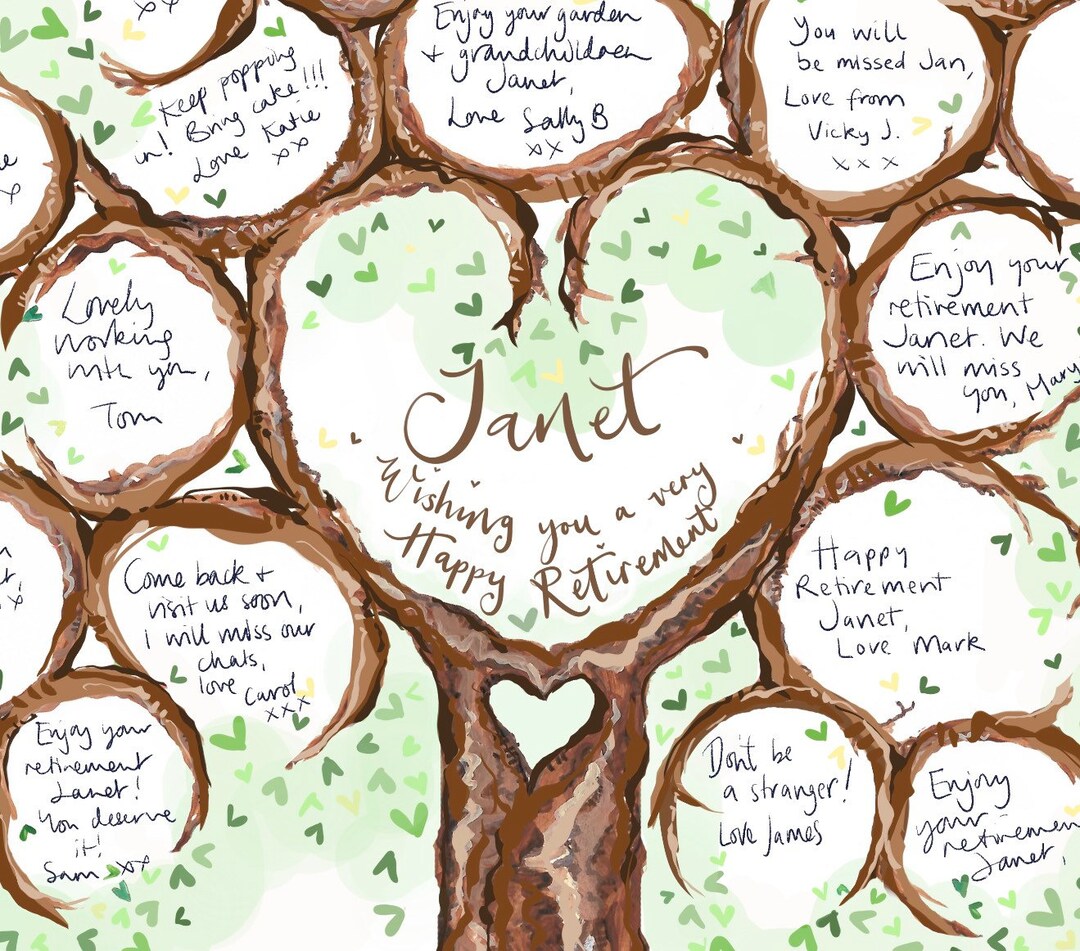 xx
Keep popping
in! Bring cake!!!
Love Katie
xx
Enjoy your garden
+ grandchildren
Janet,
Love Sally B
xx
You will
be missed Jan,
Love from
Vicky J.
x x x
Lovely
working
with you,
Tom
Janet
Wishing you a very
Happy Retirement
Enjoy your
retirement
Janet. We
will miss
you, Mary
Come back +
visit us soon,
I will miss our
chats,
love Carol
xxx
Happy
Retirement
Janet,
Love Mark
Enjoy your
retirement
Janet!
You deserve
it!
Sam xx
Don't be
a stranger!
Love James
Enjoy
your
retiremen
Janet,